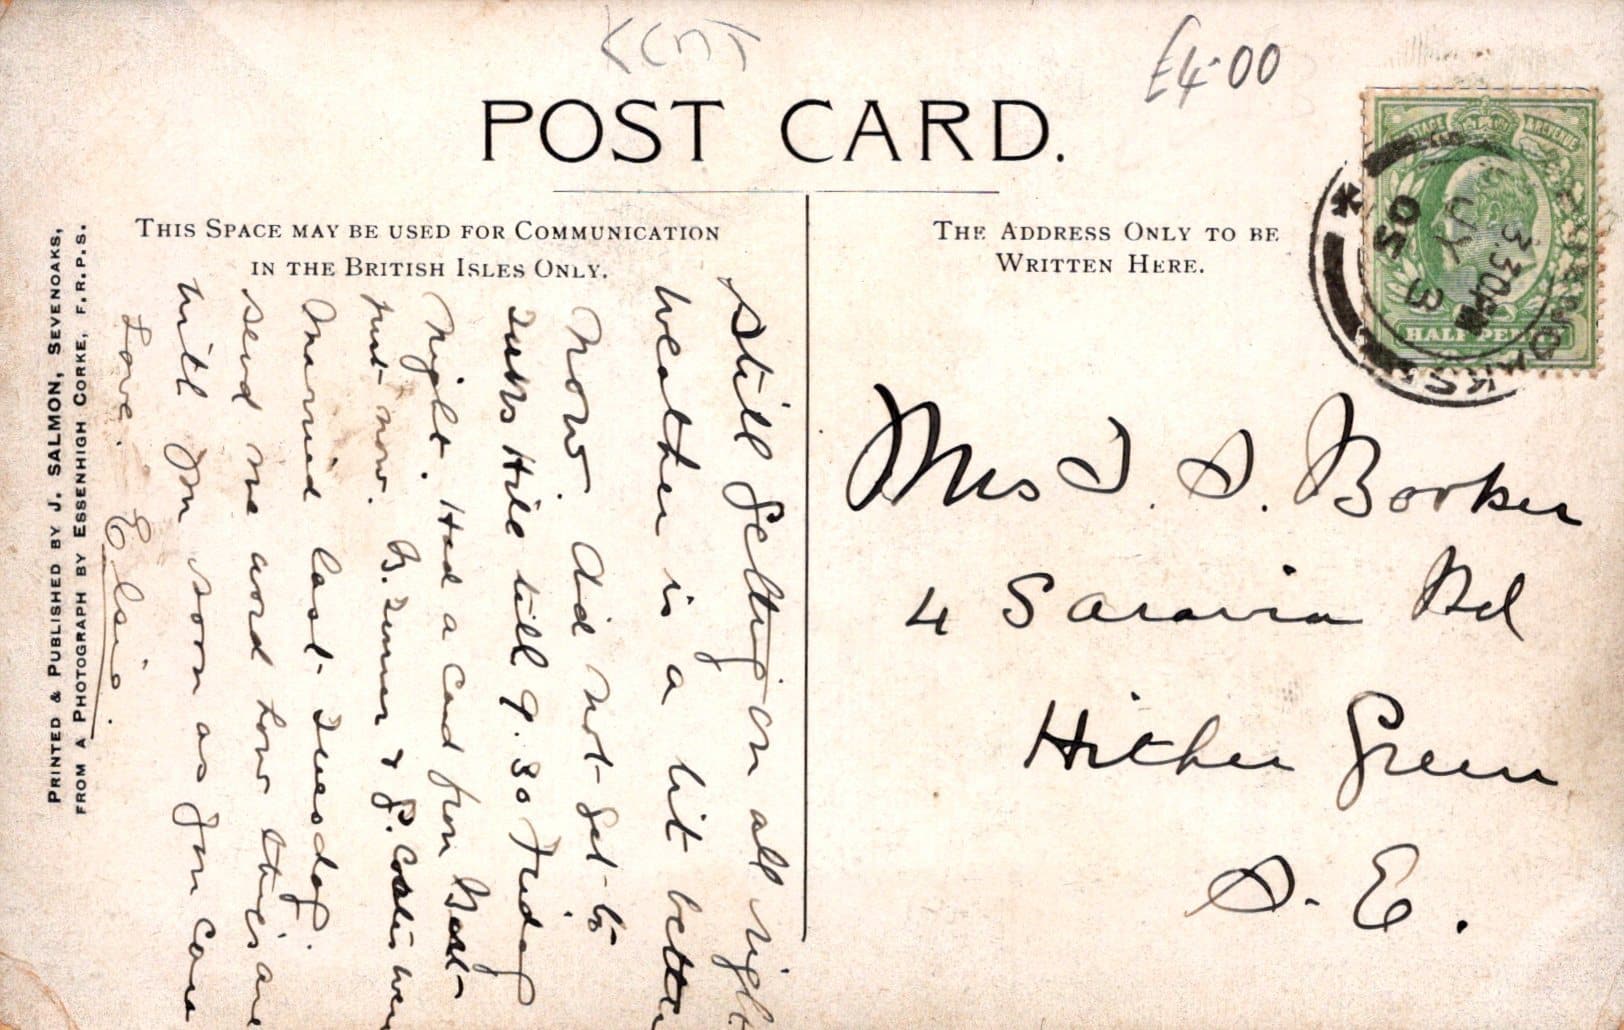 Kent
£4.00
POST CARD.
THIS SPACE MAY BE USED FOR COMMUNICATION
IN THE BRITISH ISLES ONLY.
THE ADDRESS ONLY TO BE
WRITTEN HERE.
POSTAGE REVENUE
3.30PM
JY 3
05
HALFPENNY
Still getting on all right
weather is a bit better
now. Did not get to
Tubbs Hill till 9.30 Friday
Night. Had a card from
just now. B. & G. were
Married last Tuesday.
send me word how things are
with you soon as you can
Love. Elsie.
Mrs J. S. Booker
4 Saravia Rd
Hither Green
S.E.
PRINTED & PUBLISHED BY J. SALMON, SEVENOAKS,
FROM A PHOTOGRAPH BY ESSENHIGH CORKE, F.R.P.S.